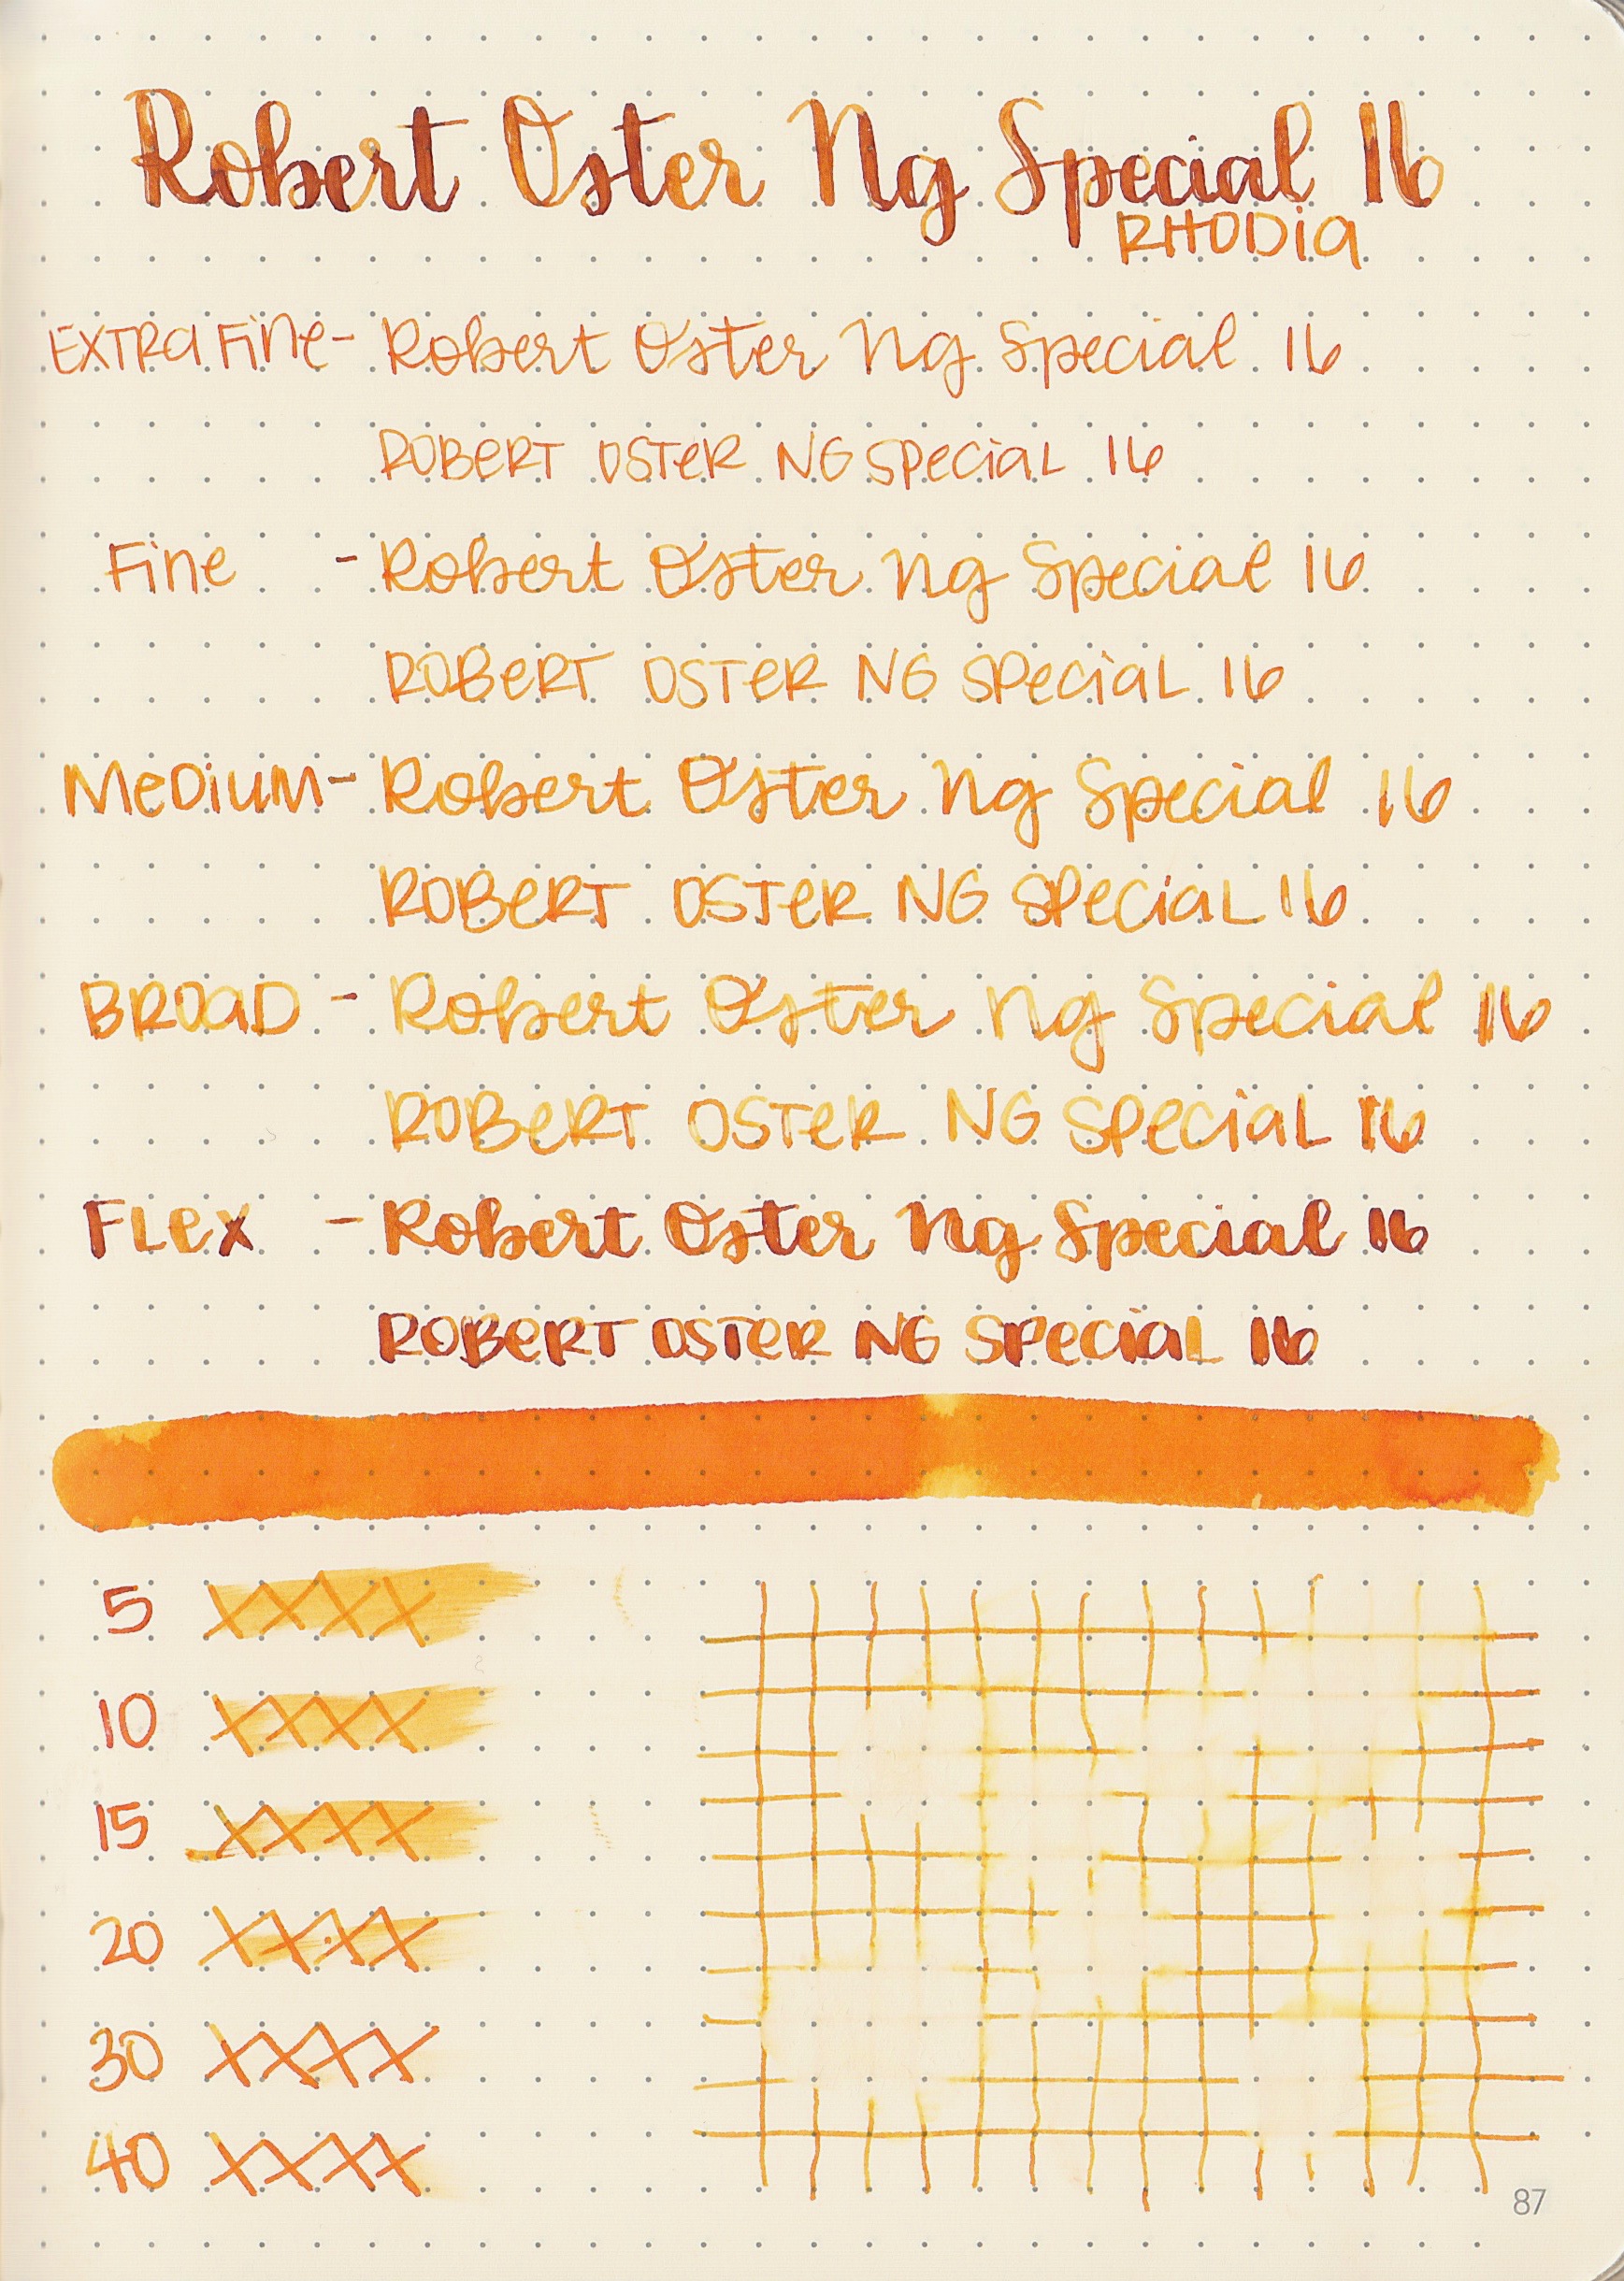 Robert Oster Ng Special 16
RHODia
EXTRa Fine- Robert Oster Ng Special 16
ROBeRT OSTeR NG SPeciaL 16
Fine - Robert Oster Ng Special 16
ROBeRT OSTeR NG SPeciaL 16
MeDiuM- Robert Oster Ng Special 16
ROBeRT OSTeR NG SPeciaL 16
BROaD - Robert Oster Ng Special 16
ROBeRT OSTeR NG SPeciaL 16
FLex - Robert Oster Ng Special 16
ROBERT OSTER NG SPeciaL 16
5 XXXX
10 XXXX
15 XXXX
20 XXXX
30 XXXX
40 XXXX
87